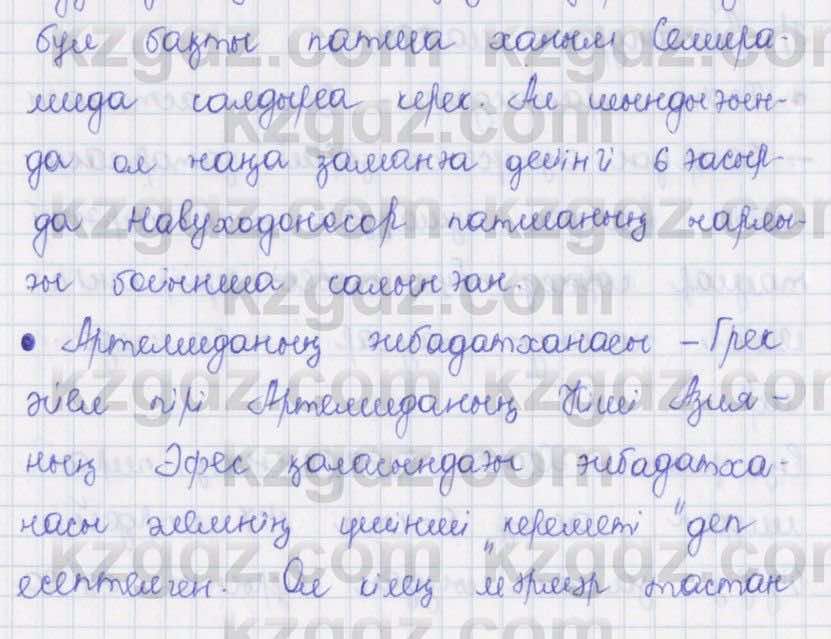 бұл бақты патша ханым Семира-
мида салдырса керек. Ал шындығын-
да ол жаңа заманға дейінгі 6 ғасыр-
да Навуходоносор патшаның жарлы-
ғы бойынша салынған.
• Артемиданың ғибадатханасы – Грек
әйел пірі Артемиданың Кіші Азия-
ның Эфес қаласындағы ғибадатха-
насы әлемнің үшінші "кереметі" деп
есептелген. Ол кілең мәрмәр тастан
kzgdz.com